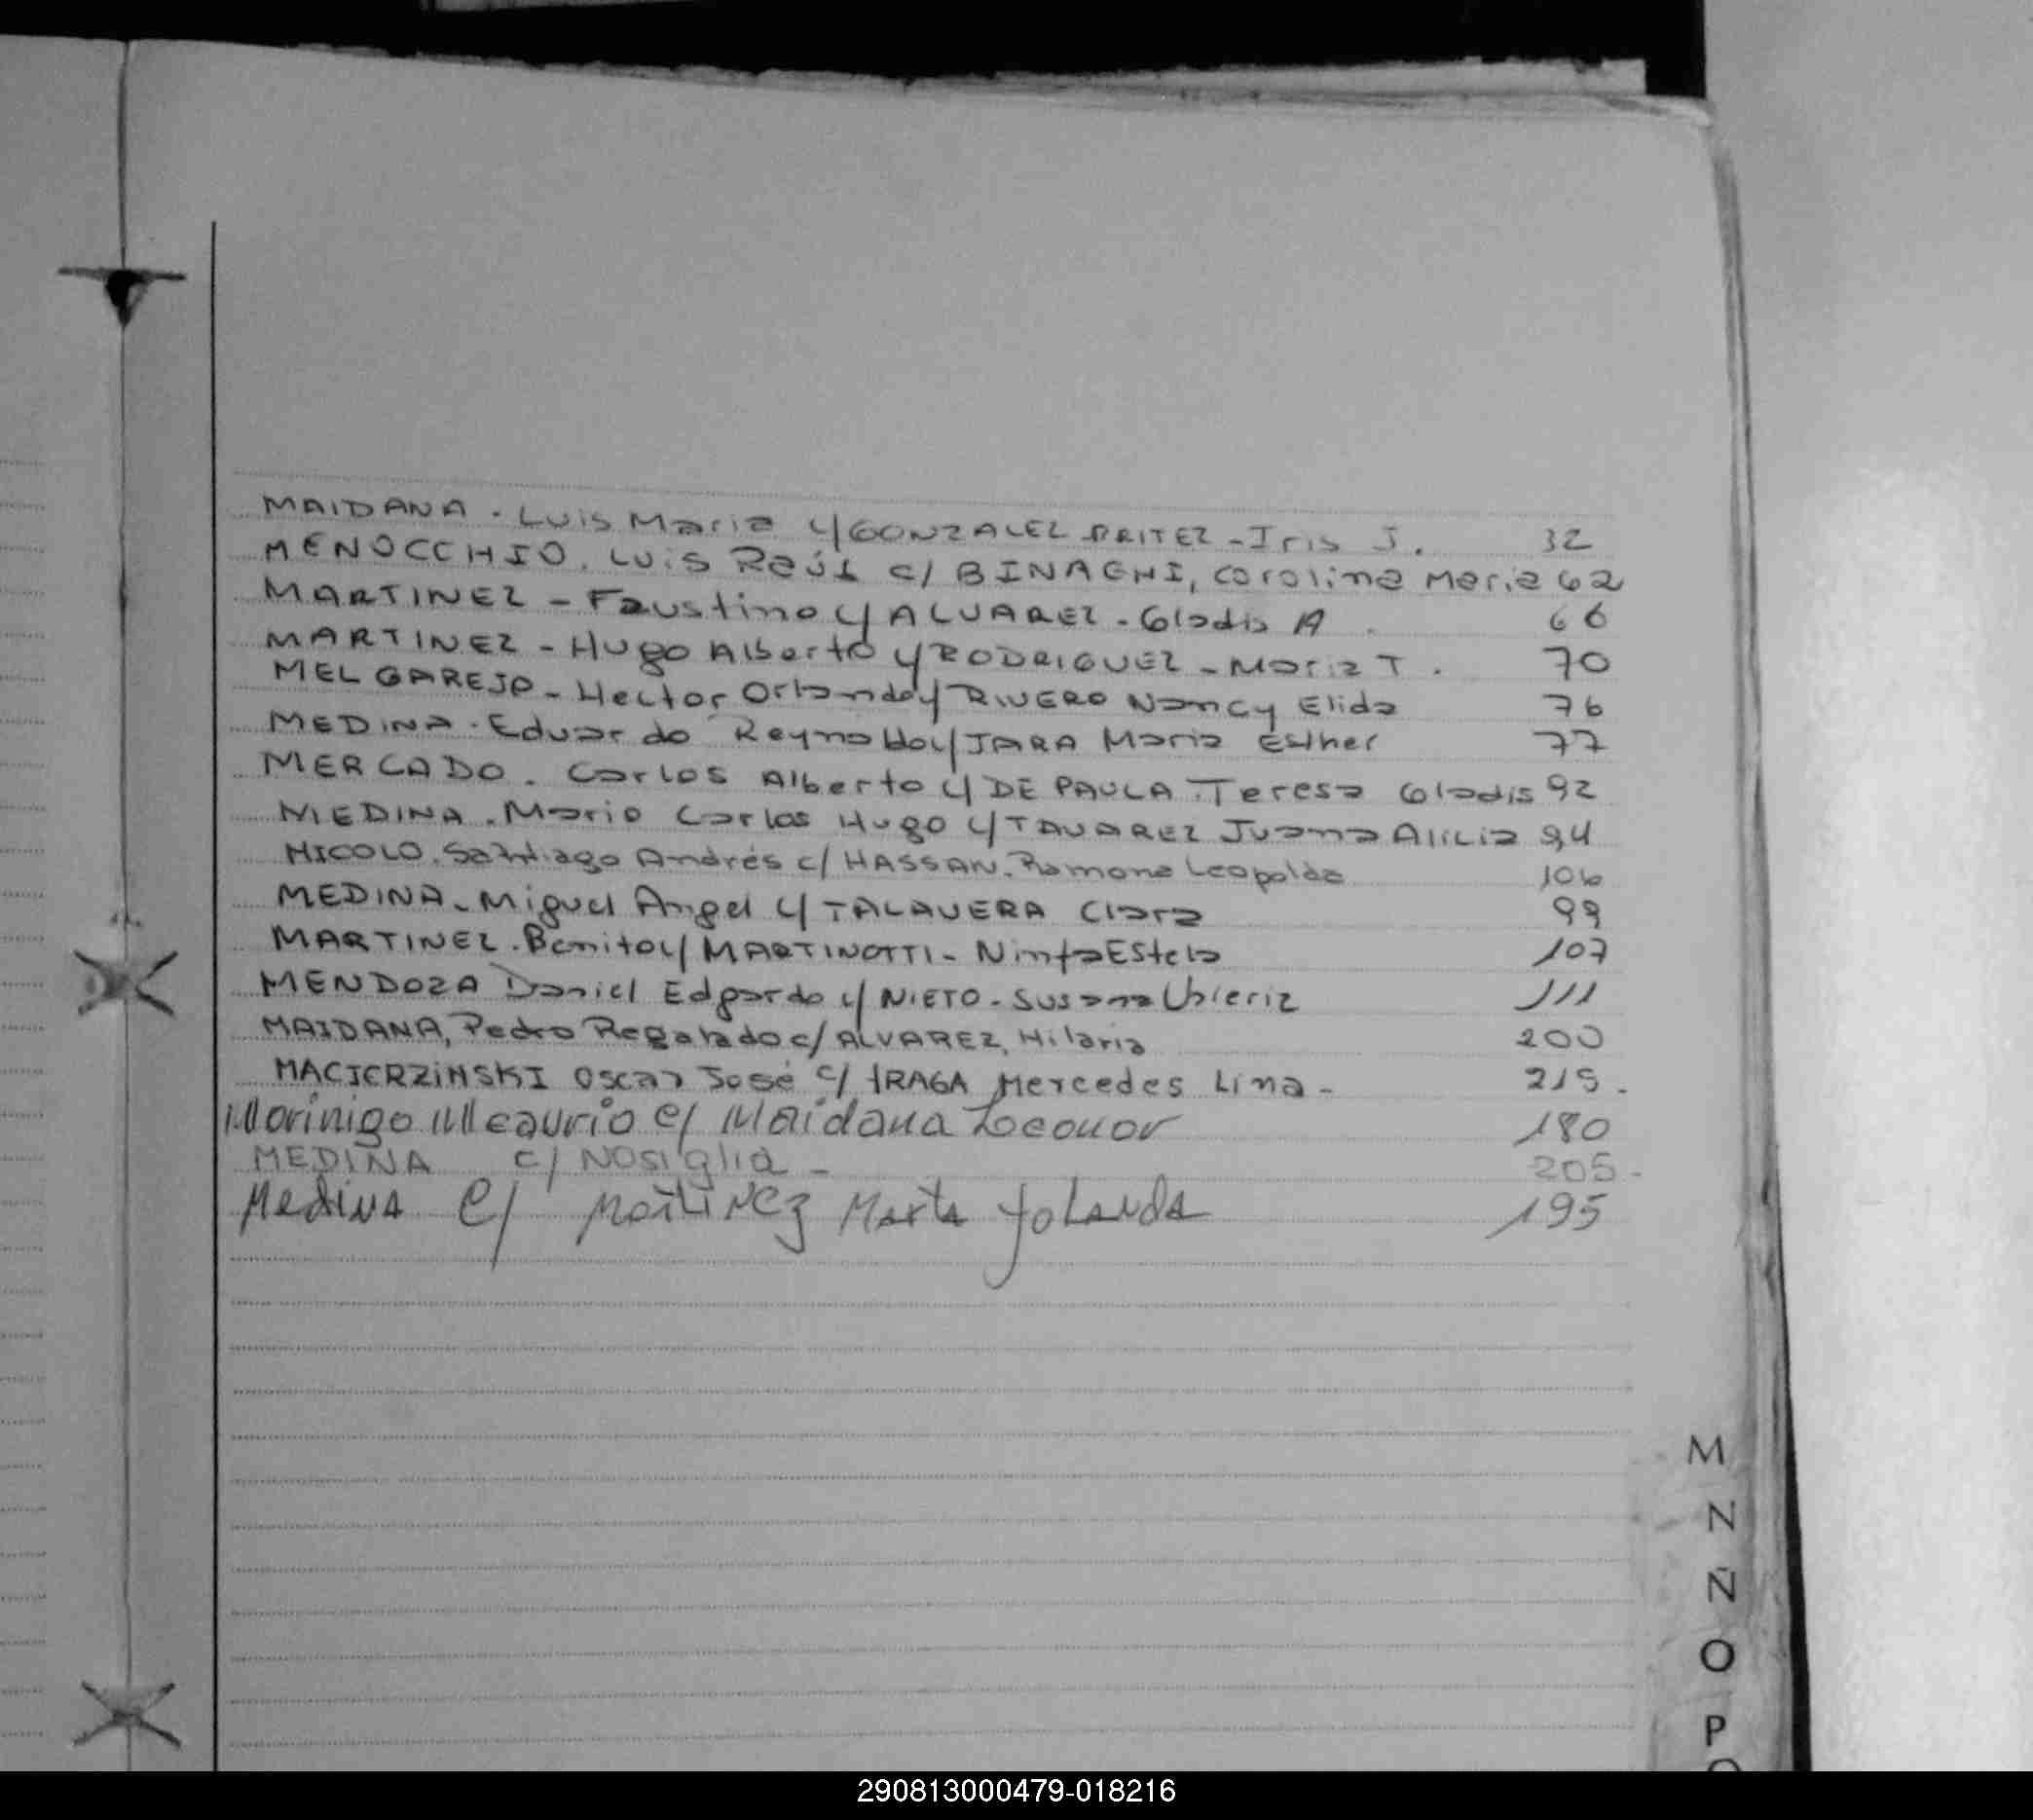 MAIDANA - Luis Maria c/ GONZALEZ BRITEZ - Iris J. 32
MENOCCHIO, Luis Raúl c/ BINAGHI, Carolina Maria 62
MARTINEZ - Faustino c/ ALVAREZ - Gladis A 66
MARTINEZ - Hugo Alberto c/ RODRIGUEZ - Maria T. 70
MELGAREJO - Hector Orlando c/ RIVERO Nancy Elida 76
MEDINA - Eduardo Reynaldo c/ JARA Maria Esther 77
MERCADO - Carlos Alberto c/ DE PAULA - Teresa Gladis 92
MEDINA - Mario Carlos Hugo c/ TAVAREZ Juana Alicia 94
MICOLO, Santiago Andrés c/ HASSAN, Ramona Leopolda 106
MEDINA - Miguel Angel c/ TALAVERA Clara 99
MARTINEZ - Benito c/ MARTINOTTI - Ninfa Estela 107
MENDOZA Daniel Edgardo c/ NIETO - Susana Valeria 111
MAIDANA, Pedro Regalado c/ ALVAREZ, Hilaria 200
MACIERZINSKI Oscar José c/ IRAGA Mercedes Lina - 215.
Morinigo Meaurio c/ Maidana Leonor 180
MEDINA c/ NOSiglia - 205.
Medina c/ Martinez Marta Yolanda 195
M
N
Ñ
O
P
290813000479-018216